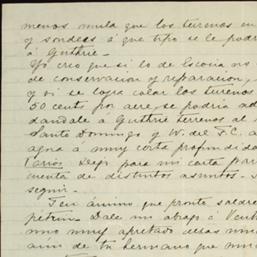 menos mula que los terrenos en
y sondeas á que tipo se le podri
á Guthrie.-
Yo creo que si lo de Escocia no
de conservacion y reparacion,
y si se logra colar los terrenos
50 cents por acre, se podria ad
dandole á Guthrie terrenos al
Santo Domingo y W. del F.C. a
agua á muy corta profundida
Varios. Dejo para mi carta por
cuenta de distintos asuntos. S
seguir.
Ten animo que pronto saldre
Dale mi abrazo á
uno muy apretado
de tu hermano que